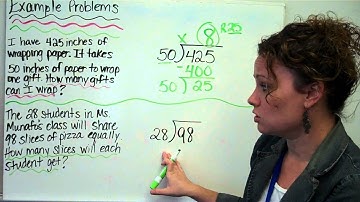 Example Problems
I have 425 inches of
wrapping paper. It takes
50 inches of paper to wrap
one gift. How many gifts
can I wrap?
The 28 students in Ms.
Munafo's class will share
98 slices of pizza equally.
How many slices will each
student get?
x 8 R25
50)425
400
50)25
28)98